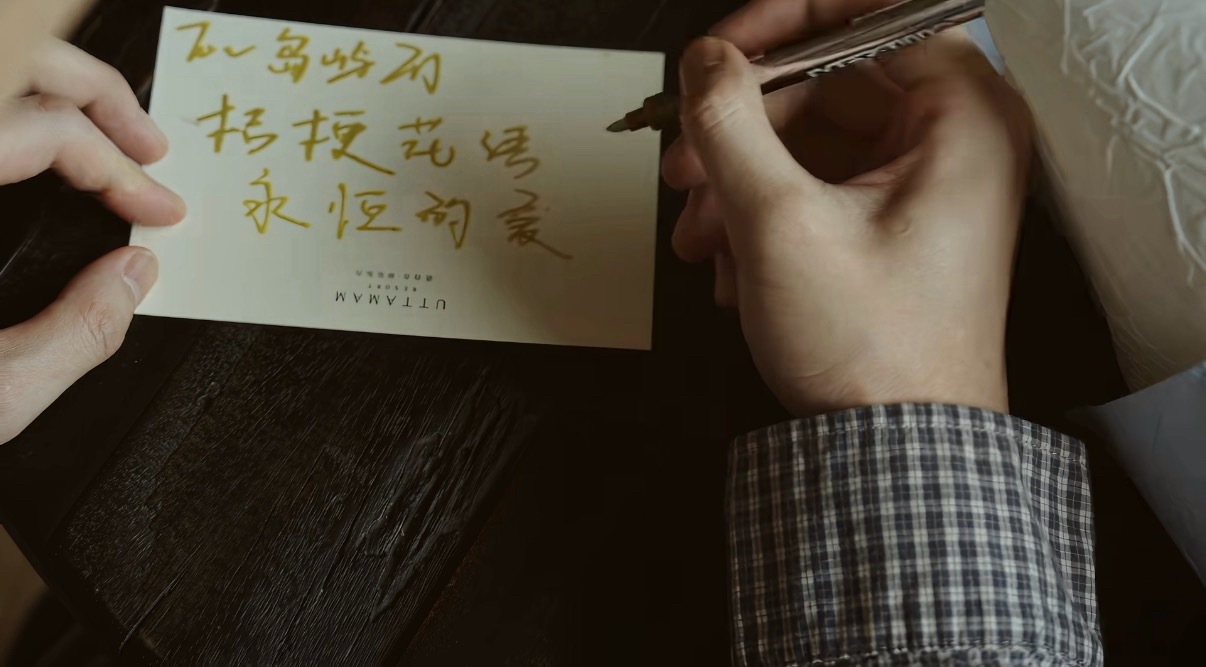 To: 岛屿
桔梗花语
永恒的爱
UTTAMAM
RESORT